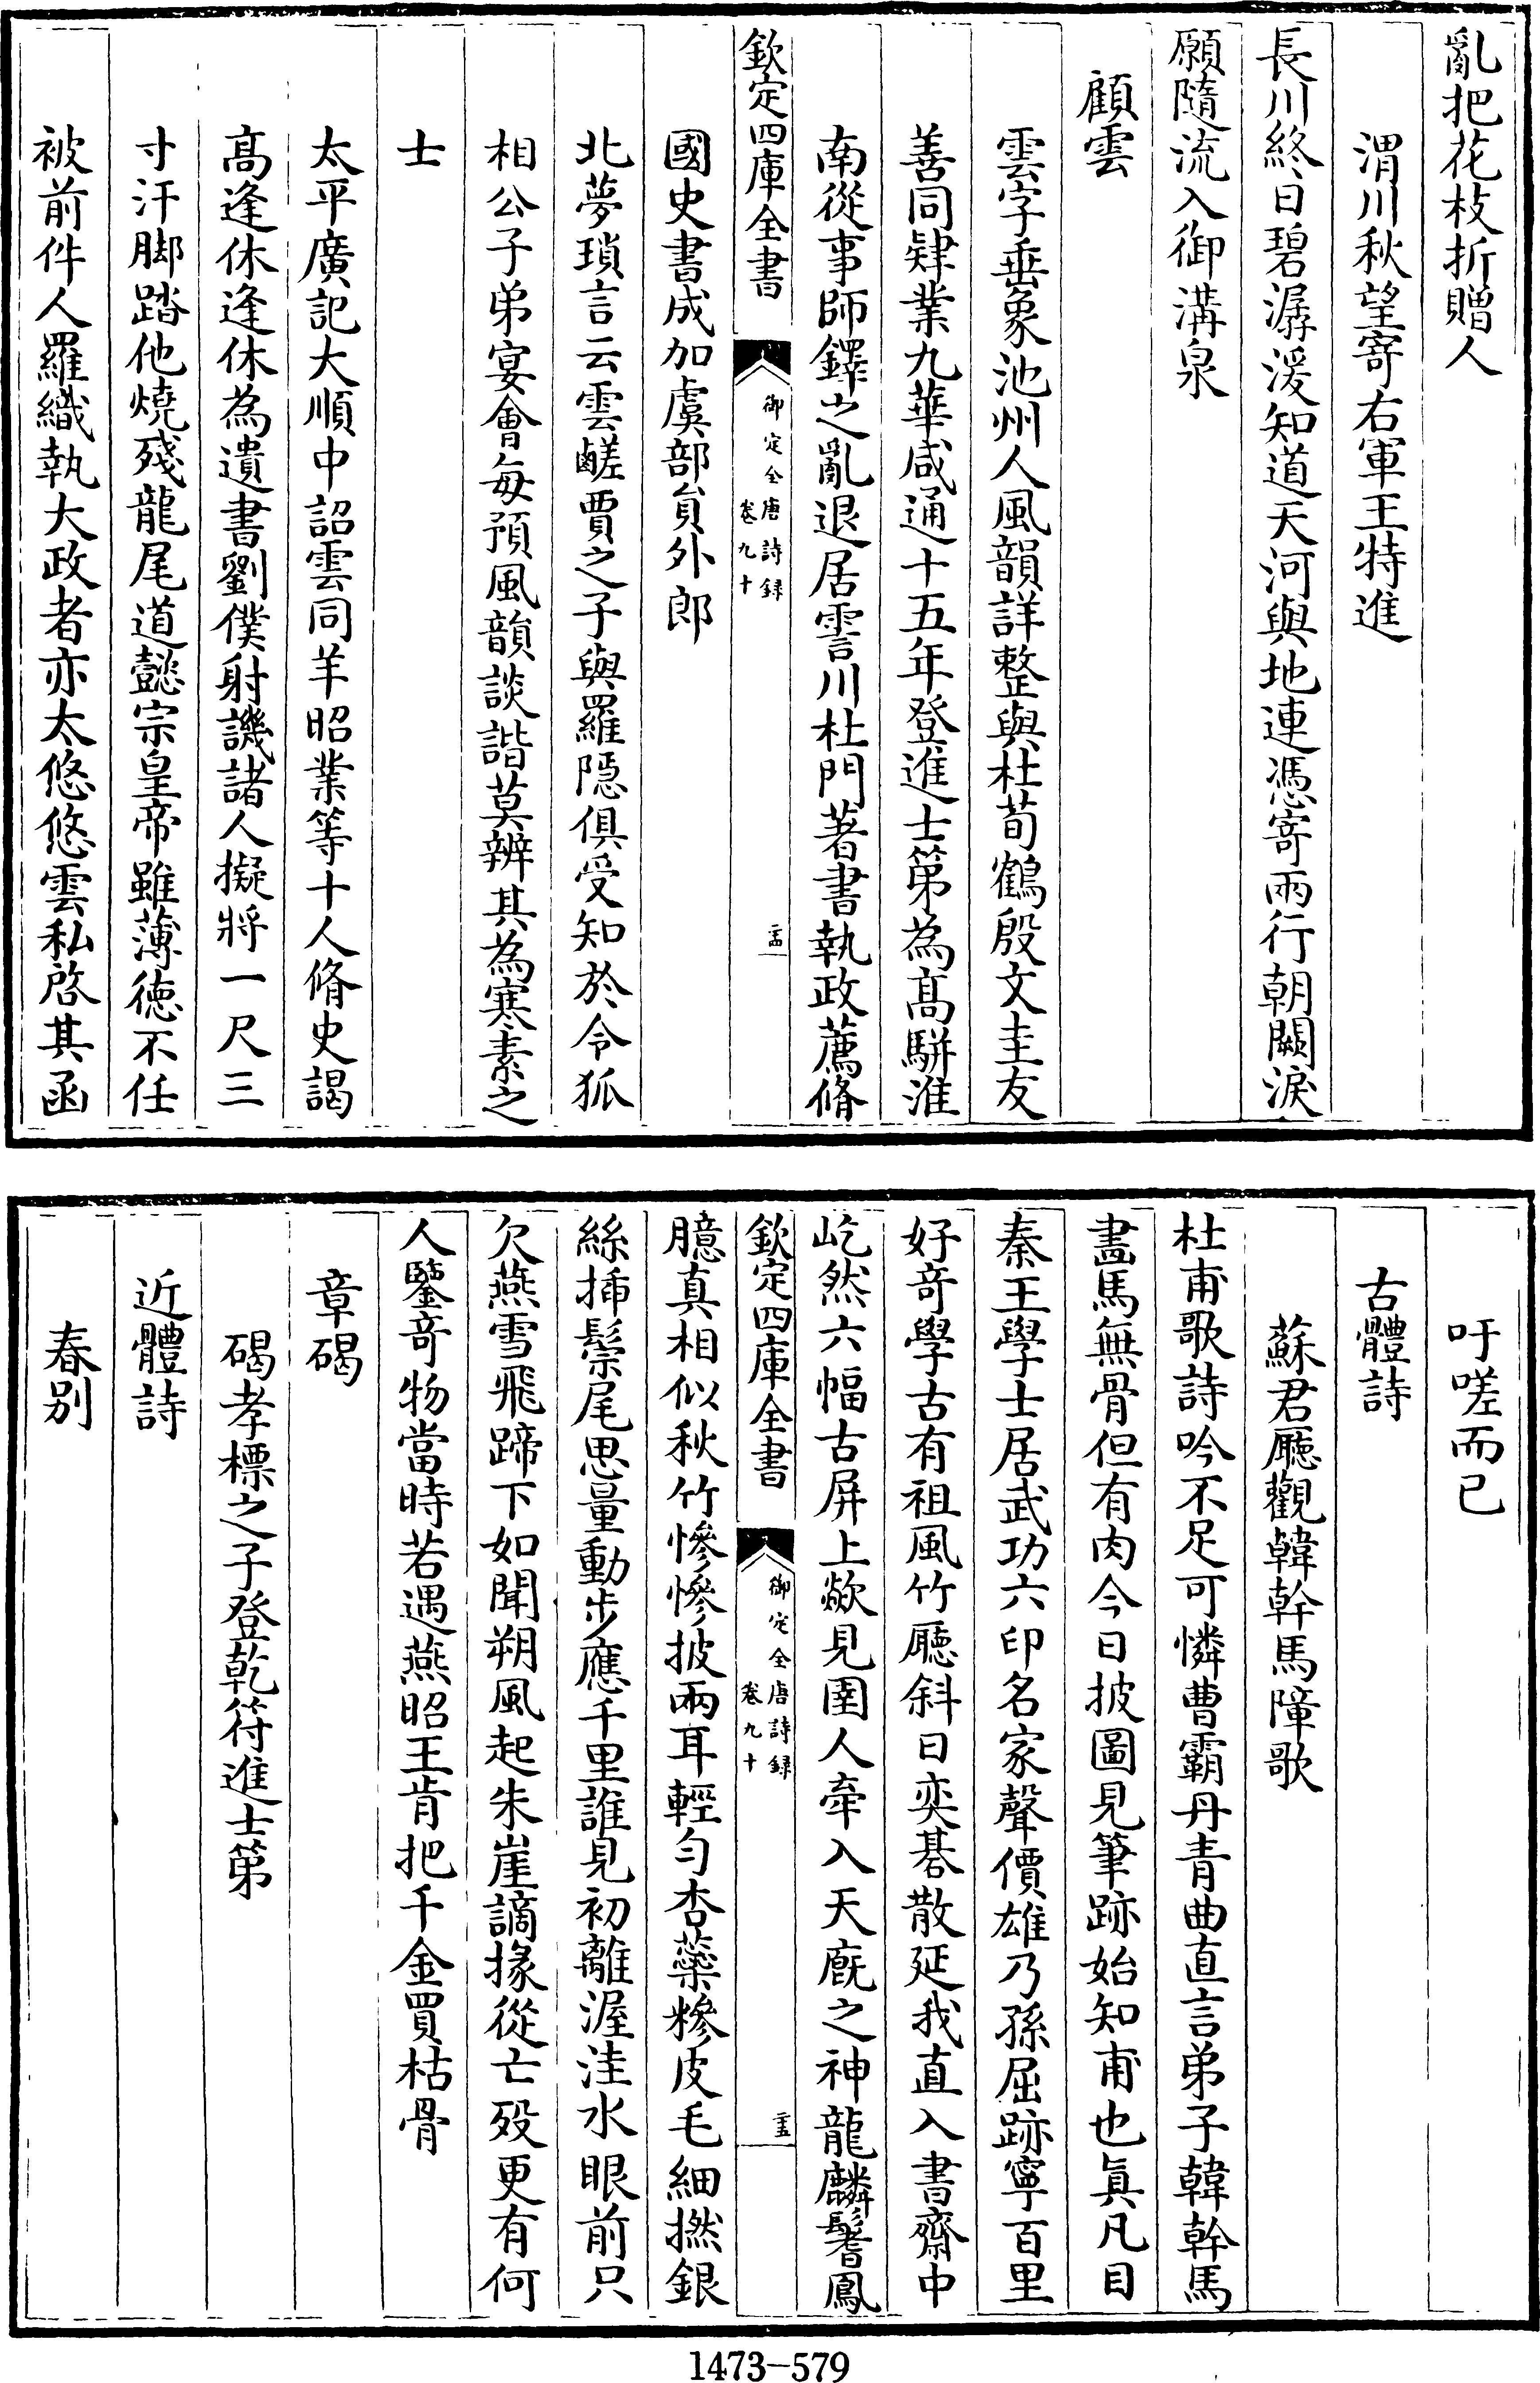 亂把花枝折贈人
渭川秋望寄右軍王特進
長川終日碧潺湲知道天河與地連憑寄兩行朝闕淚
願隨流入御溝泉
顧雲
雲字垂象池州人風韻詳整與杜荀鶴殷文圭友
善同肄業九華咸通十五年登進士第為髙駢淮
南從事師鐸之亂退居霅川杜門著書執政薦脩
欽定四庫全書
御定全唐詩録
卷九十
盂
國史書成加虞部貟外郎
北夢瑣言云雲鹺賈之子與羅隱俱受知於令狐
相公子弟宴會每預風韻談諧莫辨其為寒素之
士
太平廣記大順中詔雲同羊昭業等十人脩史謁
髙逢休逢休為遺書劉僕射譏諸人擬將一尺三
寸汗脚踏他燒殘龍尾道懿宗皇帝雖薄徳不任
被前件人羅織執大政者亦太悠悠雲私啓其函
吁嗟而已
古體詩
蘇君廳觀韓幹馬障歌
杜甫歌詩吟不足可憐曹霸丹青曲直言弟子韓幹馬
畫馬無骨但有肉今日披圖見筆跡始知甫也真凡目
秦王學士居武功六印名家聲價雄乃孫屈跡寧百里
好竒學古有祖風竹廳斜日奕碁散延我直入書齋中
屹然六幅古屏上歘見圉人牽入天廐之神龍麟鬐鳳
欽定四庫全書
御定全唐詩録
卷九十
臆真相似秋竹慘慘披兩耳輕勻杏蘂糝皮毛細撚銀
絲揷鬃尾思量動步應千里誰見初離渥洼水眼前只
欠燕雪飛蹄下如聞朔風起朱崖謫掾從亡殁更有何
人鑒竒物當時若遇燕昭王肯把千金買枯骨
章碣
碣孝標之子登乾符進士第
近體詩
春别
1473-579